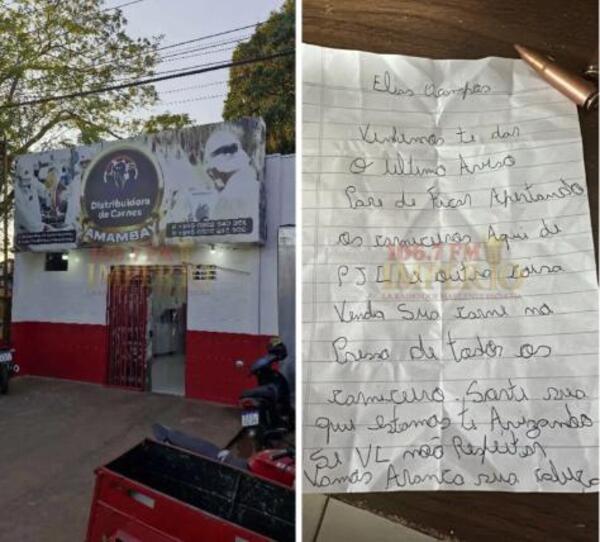 Distribuidora
de Carnes
AMAMBAY
106.7 FM
IMPERIO
Elias Campos
Viemos te dar
O ultimo Aviso
Pare de Ficar Apertando
os carniceiros Aqui de
PJC e outra coisa
Venda Sua carne no
Preso de todos os
carniceiro. Santi sua
que estamos te Avizando
Se VC não Respeitar
Vamos Aranca sua cabeça
106.7 FM
IMPERIO